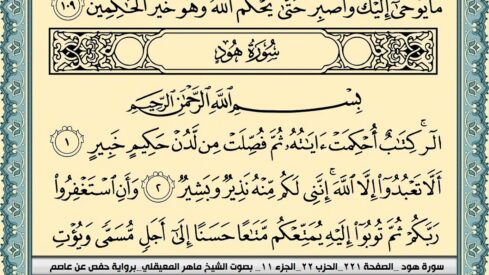 مَا يُوحَىٰٓ إِلَيْكَ وَٱصْبِرْ حَتَّىٰ يَحْكُمَ ٱللَّهُ وَهُوَ خَيْرُ ٱلْحَٰكِمِينَ ١٠٩
سُورَةُ هُودٍ
بِسْمِ ٱللَّهِ ٱلرَّحْمَٰنِ ٱلرَّحِيمِ
الٓر كِتَٰبٌ أُحْكِمَتْ ءَايَٰتُهُۥ ثُمَّ فُصِّلَتْ مِن لَّدُنْ حَكِيمٍ خَبِيرٍ ١
أَلَّا تَعْبُدُوٓا۟ إِلَّا ٱللَّهَ إِنَّنِى لَكُم مِّنْهُ نَذِيرٌ وَبَشِيرٌ ٢ وَأَنِ ٱسْتَغْفِرُوا۟
رَبَّكُمْ ثُمَّ تُوبُوٓا۟ إِلَيْهِ يُمَتِّعْكُم مَّتَٰعًا حَسَنًا إِلَىٰٓ أَجَلٍ مُّسَمًّى وَيُؤْتِ
سورة هود _ الصفحة ٢٢١_ الحزب ٢٢_ الجزء ١١_ بصوت الشيخ ماهر المعيقلي_ برواية حفص عن عاصم